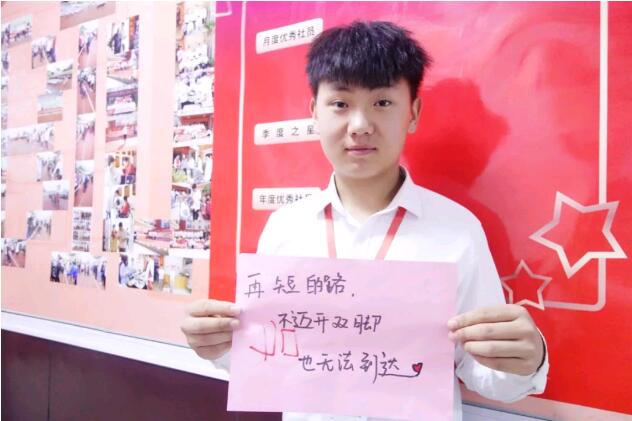 月度优秀社员
季度之星
年度优秀社
再短的路,
不迈开双脚
也无法到达